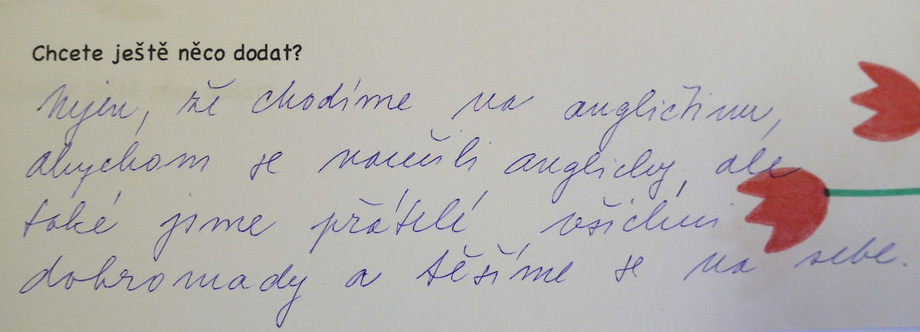 Chcete ještě něco dodat?
Nejen, že chodíme na angličtinu,
abychom se naučili anglicky, ale
také jsme přátelé všichni
dohromady a těšíme se na sebe.